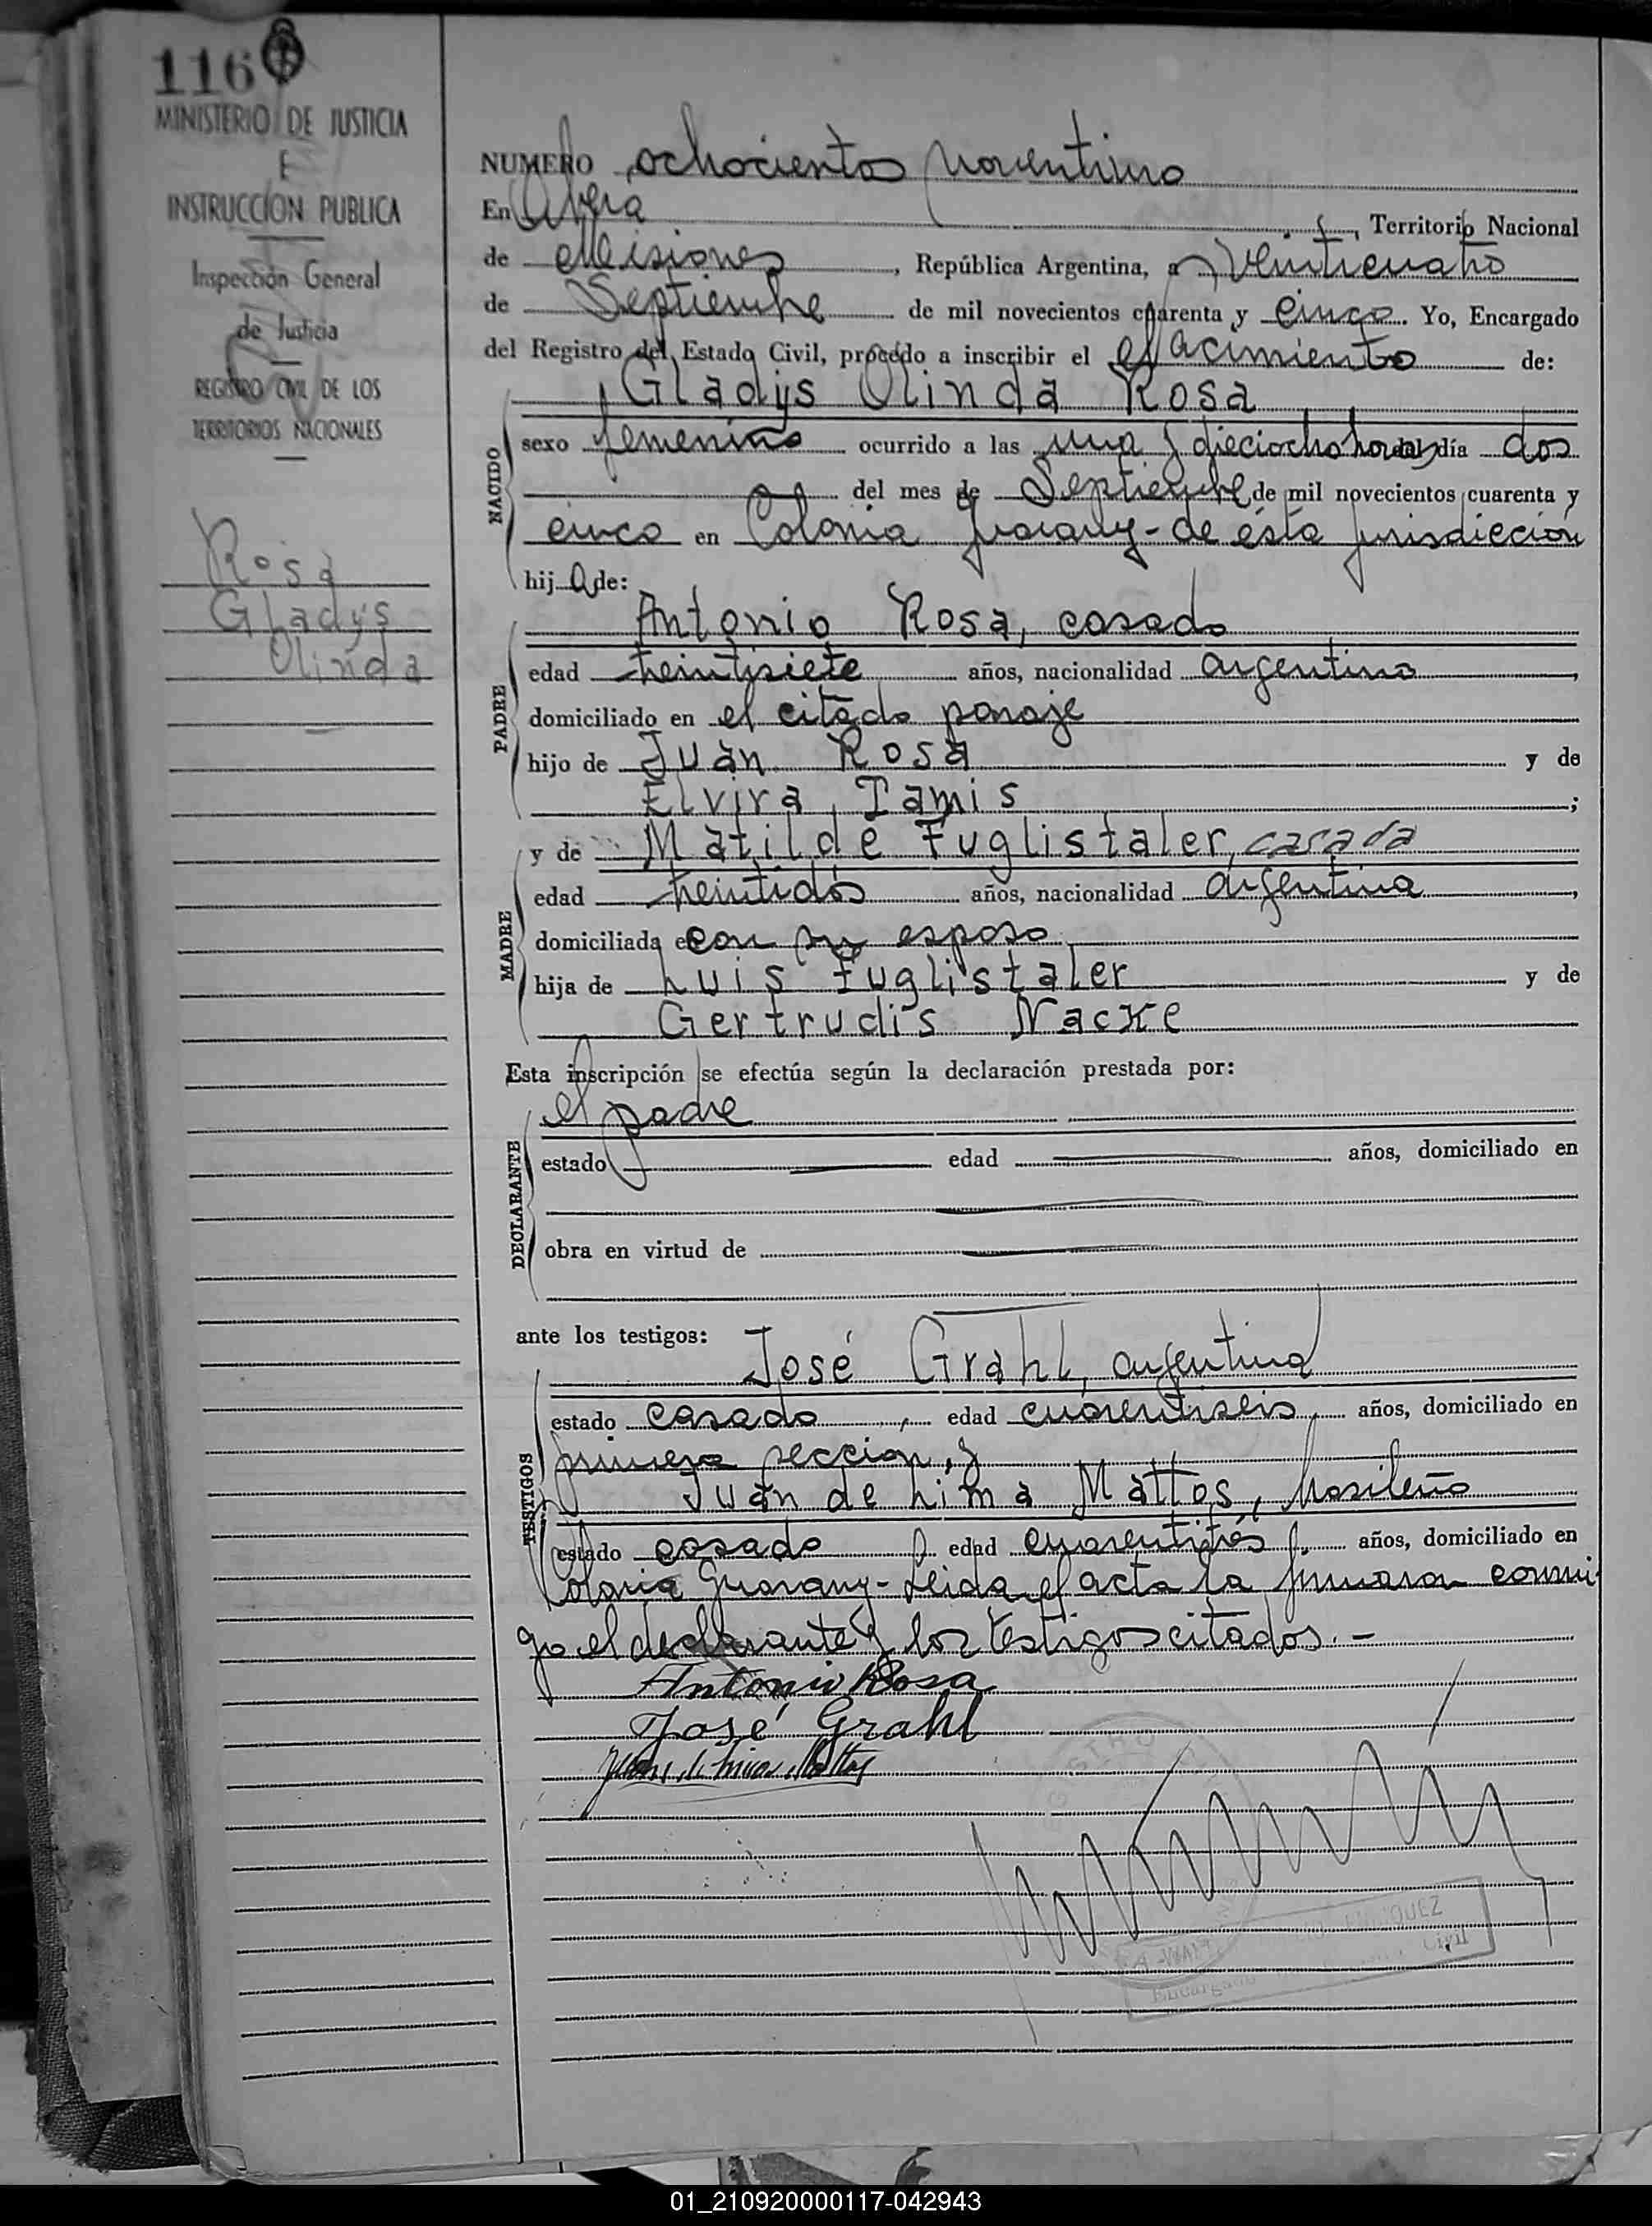 116
MINISTERIO DE JUSTICIA
E
INSTRUCCION PUBLICA
Inspección General
de Justicia
REGISTRO CIVIL DE LOS
TERRITORIOS NACIONALES
Rosa
Gladys
Olinda
NUMERO ochocientos noventiuno
En Obera, Territorio Nacional
de Misiones, República Argentina, a Veinticuatro
de Septiembre de mil novecientos cuarenta y cinco. Yo, Encargado
del Registro del Estado Civil, procedo a inscribir el nacimiento de:
Gladys Olinda Rosa
NACIDO
sexo femenino ocurrido a las una y dieciocho horas del día dos
del mes de Septiembre de mil novecientos cuarenta y
cinco en Colonia Guarany - de ésta jurisdicción
hija de:
Antonio Rosa, casado
PADRE
edad treintisiete años, nacionalidad argentino,
domiciliado en el citado paraje
hijo de Juan Rosa y de
Elvira Tamis;
y de Matilde Fuglistaler, casada
MADRE
edad treintidós años, nacionalidad argentina,
domiciliada en con su esposo
hija de Luis Fuglistaler y de
Gertrudis Nacke
Esta inscripción se efectúa según la declaración prestada por:
el padre
DECLARANTE
estado edad años, domiciliado en
obra en virtud de
ante los testigos: José Grahl, argentino
TESTIGOS
estado casado, edad cuarentiseis, años, domiciliado en
primera seccion, y
Juan de Lima Mattos, brasileño
estado casado, edad cuarentitrés, años, domiciliado en
Colonia Guarany - Leida el acta la firmaron conmi-
go el declarante y los testigos citados. -
Antonio Rosa
José Grahl
Juan de Lima Mattos
Encargado Civil
01_210920000117-042943